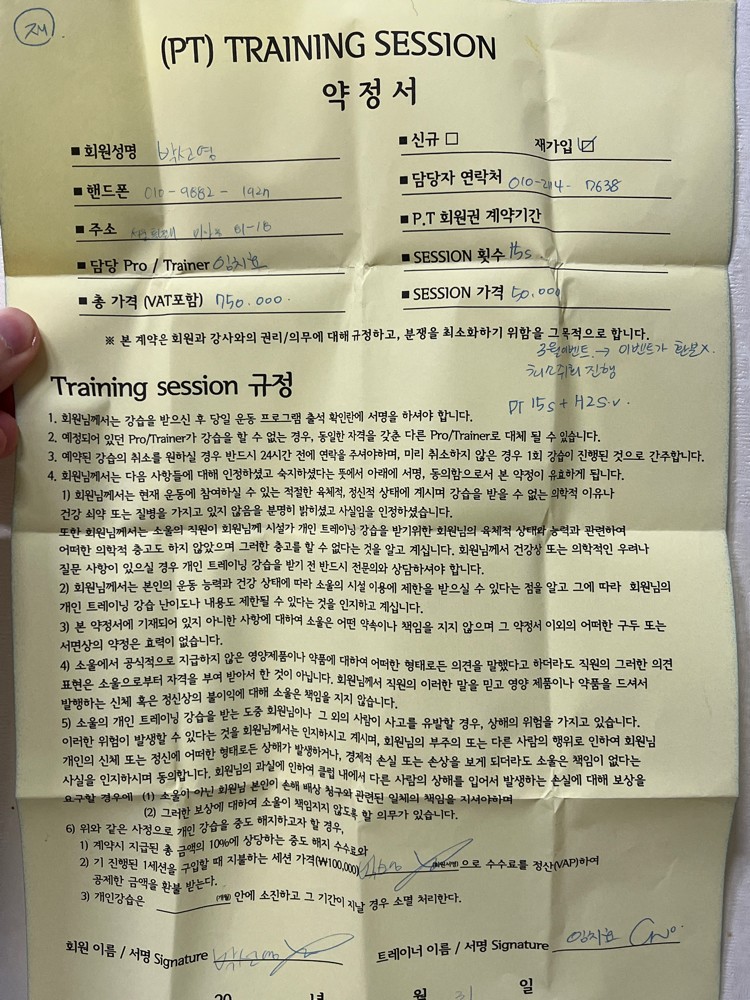 (PT) TRAINING SESSION
약정서
■ 회원성명
■ 신규 □ 재가입 ☑
■ 핸드폰 010-9882-
■ 담당자 연락처
■ 주소
■ P.T 회원권 계약기간
■ 담당 Pro / Trainer 임치효
■ SESSION 횟수 15s
■ 총 가격 (VAT포함) 750.000.
■ SESSION 가격 50,000
※ 본 계약은 회원과 강사와의 권리/의무에 대해 규정하고, 분쟁을 최소화하기 위함을 그 목적으로 합니다.
3월이벤트. → 이벤트가 환불X.
진행
PT 15s + H2S.v.
Training session 규정
1. 회원님께서는 강습을 받으신 후 당일 운동 프로그램 출석 확인란에 서명을 하셔야 합니다.
2. 예정되어 있던 Pro/Trainer가 강습을 할 수 없는 경우, 동일한 자격을 갖춘 다른 Pro/Trainer로 대체 될 수 있습니다.
3. 예약된 강습의 취소를 원하실 경우 반드시 24시간 전에 연락을 주셔야하며, 미리 취소하지 않은 경우 1회 강습이 진행된 것으로 간주합니다.
4. 회원님께서는 다음 사항들에 대해 인정하셨고 숙지하셨다는 뜻에서 아래에 서명, 동의함으로서 본 약정이 유효하게 됩니다.
1) 회원님께서는 현재 운동에 참여하실 수 있는 적절한 육체적, 정신적 상태에 계시며 강습을 받을 수 없는 의학적 이유나
건강 쇠약 또는 질병을 가지고 있지 않음을 분명히 밝히셨고 사실임을 인정하셨습니다.
또한 회원님께서는 소울의 직원이 회원님께 시설가 개인 트레이닝 강습을 받기위한 회원님의 육체적 상태와 능력과 관련하여
어떠한 의학적 충고도 하지 않았으며 그러한 충고를 할 수 없다는 것을 알고 계십니다. 회원님께서 건강상 또는 의학적인 우려나
질문 사항이 있으실 경우 개인 트레이닝 강습을 받기 전 반드시 전문의와 상담하셔야 합니다.
2) 회원님께서는 본인의 운동 능력과 건강 상태에 따라 소울의 시설 이용에 제한을 받으실 수 있다는 점을 알고 그에 따라 회원님의
개인 트레이닝 강습 난이도나 내용도 제한될 수 있다는 것을 인지하고 계십니다.
3) 본 약정서에 기재되어 있지 아니한 사항에 대하여 소울은 어떤 약속이나 책임을 지지 않으며 그 약정서 이외의 어떠한 구두 또는
서면상의 약정은 효력이 없습니다.
4) 소울에서 공식적으로 지급하지 않은 영양제품이나 약품에 대하여 어떠한 형태로든 의견을 말했다고 하더라도 직원의 그러한 의견
표현은 소울으로부터 자격을 부여 받아서 한 것이 아닙니다. 회원님께서 직원의 이러한 말을 믿고 영양 제품이나 약품을 드셔서
발행하는 신체 혹은 정신상의 불이익에 대해 소울은 책임을 지지 않습니다.
5) 소울의 개인 트레이닝 강습을 받는 도중 회원님이나 그 외의 사람이 사고를 유발할 경우, 상해의 위험을 가지고 있습니다.
이러한 위험이 발생할 수 있다는 것을 회원님께서는 인지하시고 계시며, 회원님의 부주의 또는 다른 사람의 행위로 인하여 회원님
개인의 신체 또는 정신에 어떠한 형태로든 상해가 발생하거나, 경제적 손실 또는 손상을 보게 되더라도 소울은 책임이 없다는
사실을 인지하시며 동의합니다. 회원님의 과실에 인하여 클럽 내에서 다른 사람의 상해를 입어서 발생하는 손실에 대해 보상을
요구할 경우에 (1) 소울이 아닌 회원님 본인이 손해 배상 청구와 관련된 일체의 책임을 지셔야하며
(2) 그러한 보상에 대하여 소울이 책임지지 않도록 할 의무가 있습니다.
6) 위와 같은 사정으로 개인 강습을 중도 해지하고자 할 경우,
1) 계약시 지급된 총 금액의 10%에 상당하는 중도 해지 수수료와
2) 기 진행된 1세션을 구입할 때 지불하는 세션 가격(₩100,000) (회원서명)으로 수수료를 정산(VAP)하여
공제한 금액을 환불 받는다.
3) 개인강습은 (개월) 안에 소진하고 그 기간이 지날 경우 소멸 처리한다.
회원 이름 / 서명 Signature
트레이너 이름 / 서명 Signature 임치효
20 년 월 31 일